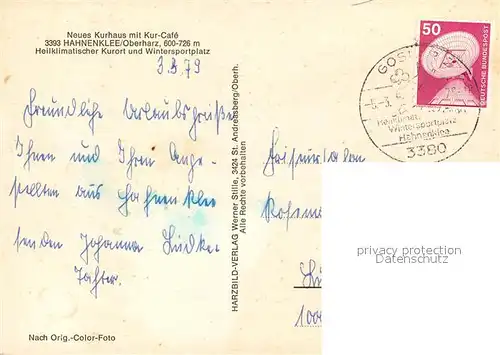 Neues Kurhaus mit Kur-Café
3393 HAHNENKLEE/Oberharz, 600-726 m
Heilklimatischer Kurort und Wintersportplatz
3.3.79
Freundliche Urlaubsgrüße
Ihnen und Ihren Ange-
stellten aus Hahnenklee
senden Johanna Lüdke-
Nach Orig.-Color-Foto
HARZBILD-VERLAG Werner Stille, 3424 St. Andreasberg/Oberh.
Alle Rechte vorbehalten
50
DEUTSCHE BUNDESPOST
GOSLAR
Heilklimat.
Wintersportplatz
Hahnenklee
3380
Frisiersalon
Rosem
1000
privacy protection
Datenschutz